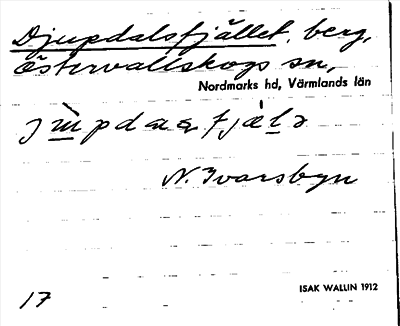 Djupdalsfjället, berg,
Östervallskogs sn,
Nordmarks hd, Värmlands län
N. Ivarsbyn
17
ISAK WALLIN 1912